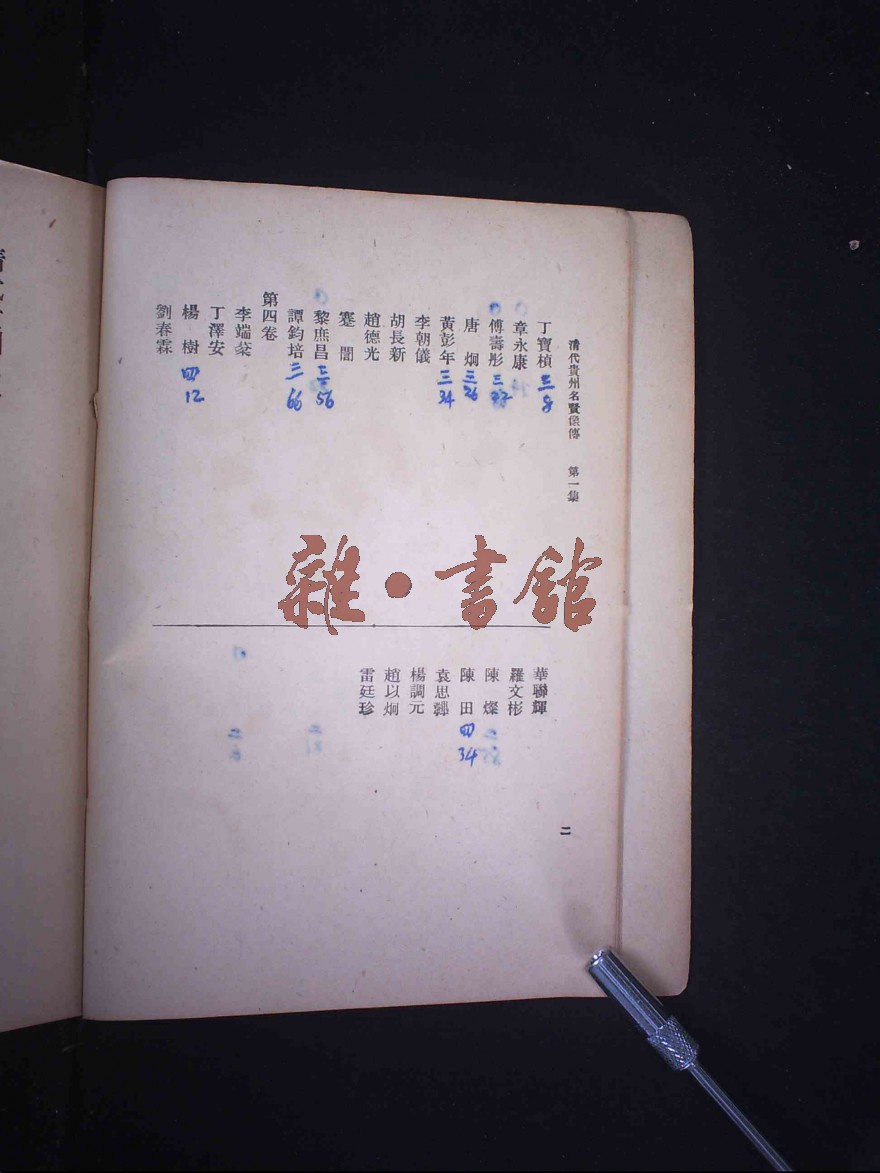 清代貴州名賢像傳 第一集
丁寶楨 三 8
章永康
傅壽彤 三 22
唐 炯 三 26
黃彭年 三 34
李朝儀
胡長新
趙德光
蹇 誾
黎庶昌 三 56
譚鈞培 三 66
第四卷
李端棻
丁澤安
楊 樹 四 12
劉春霖
華聯輝
羅文彬
陳 燦
陳 田 四 34
袁思韠
楊調元
趙以炯
雷廷珍
二
雜·書館